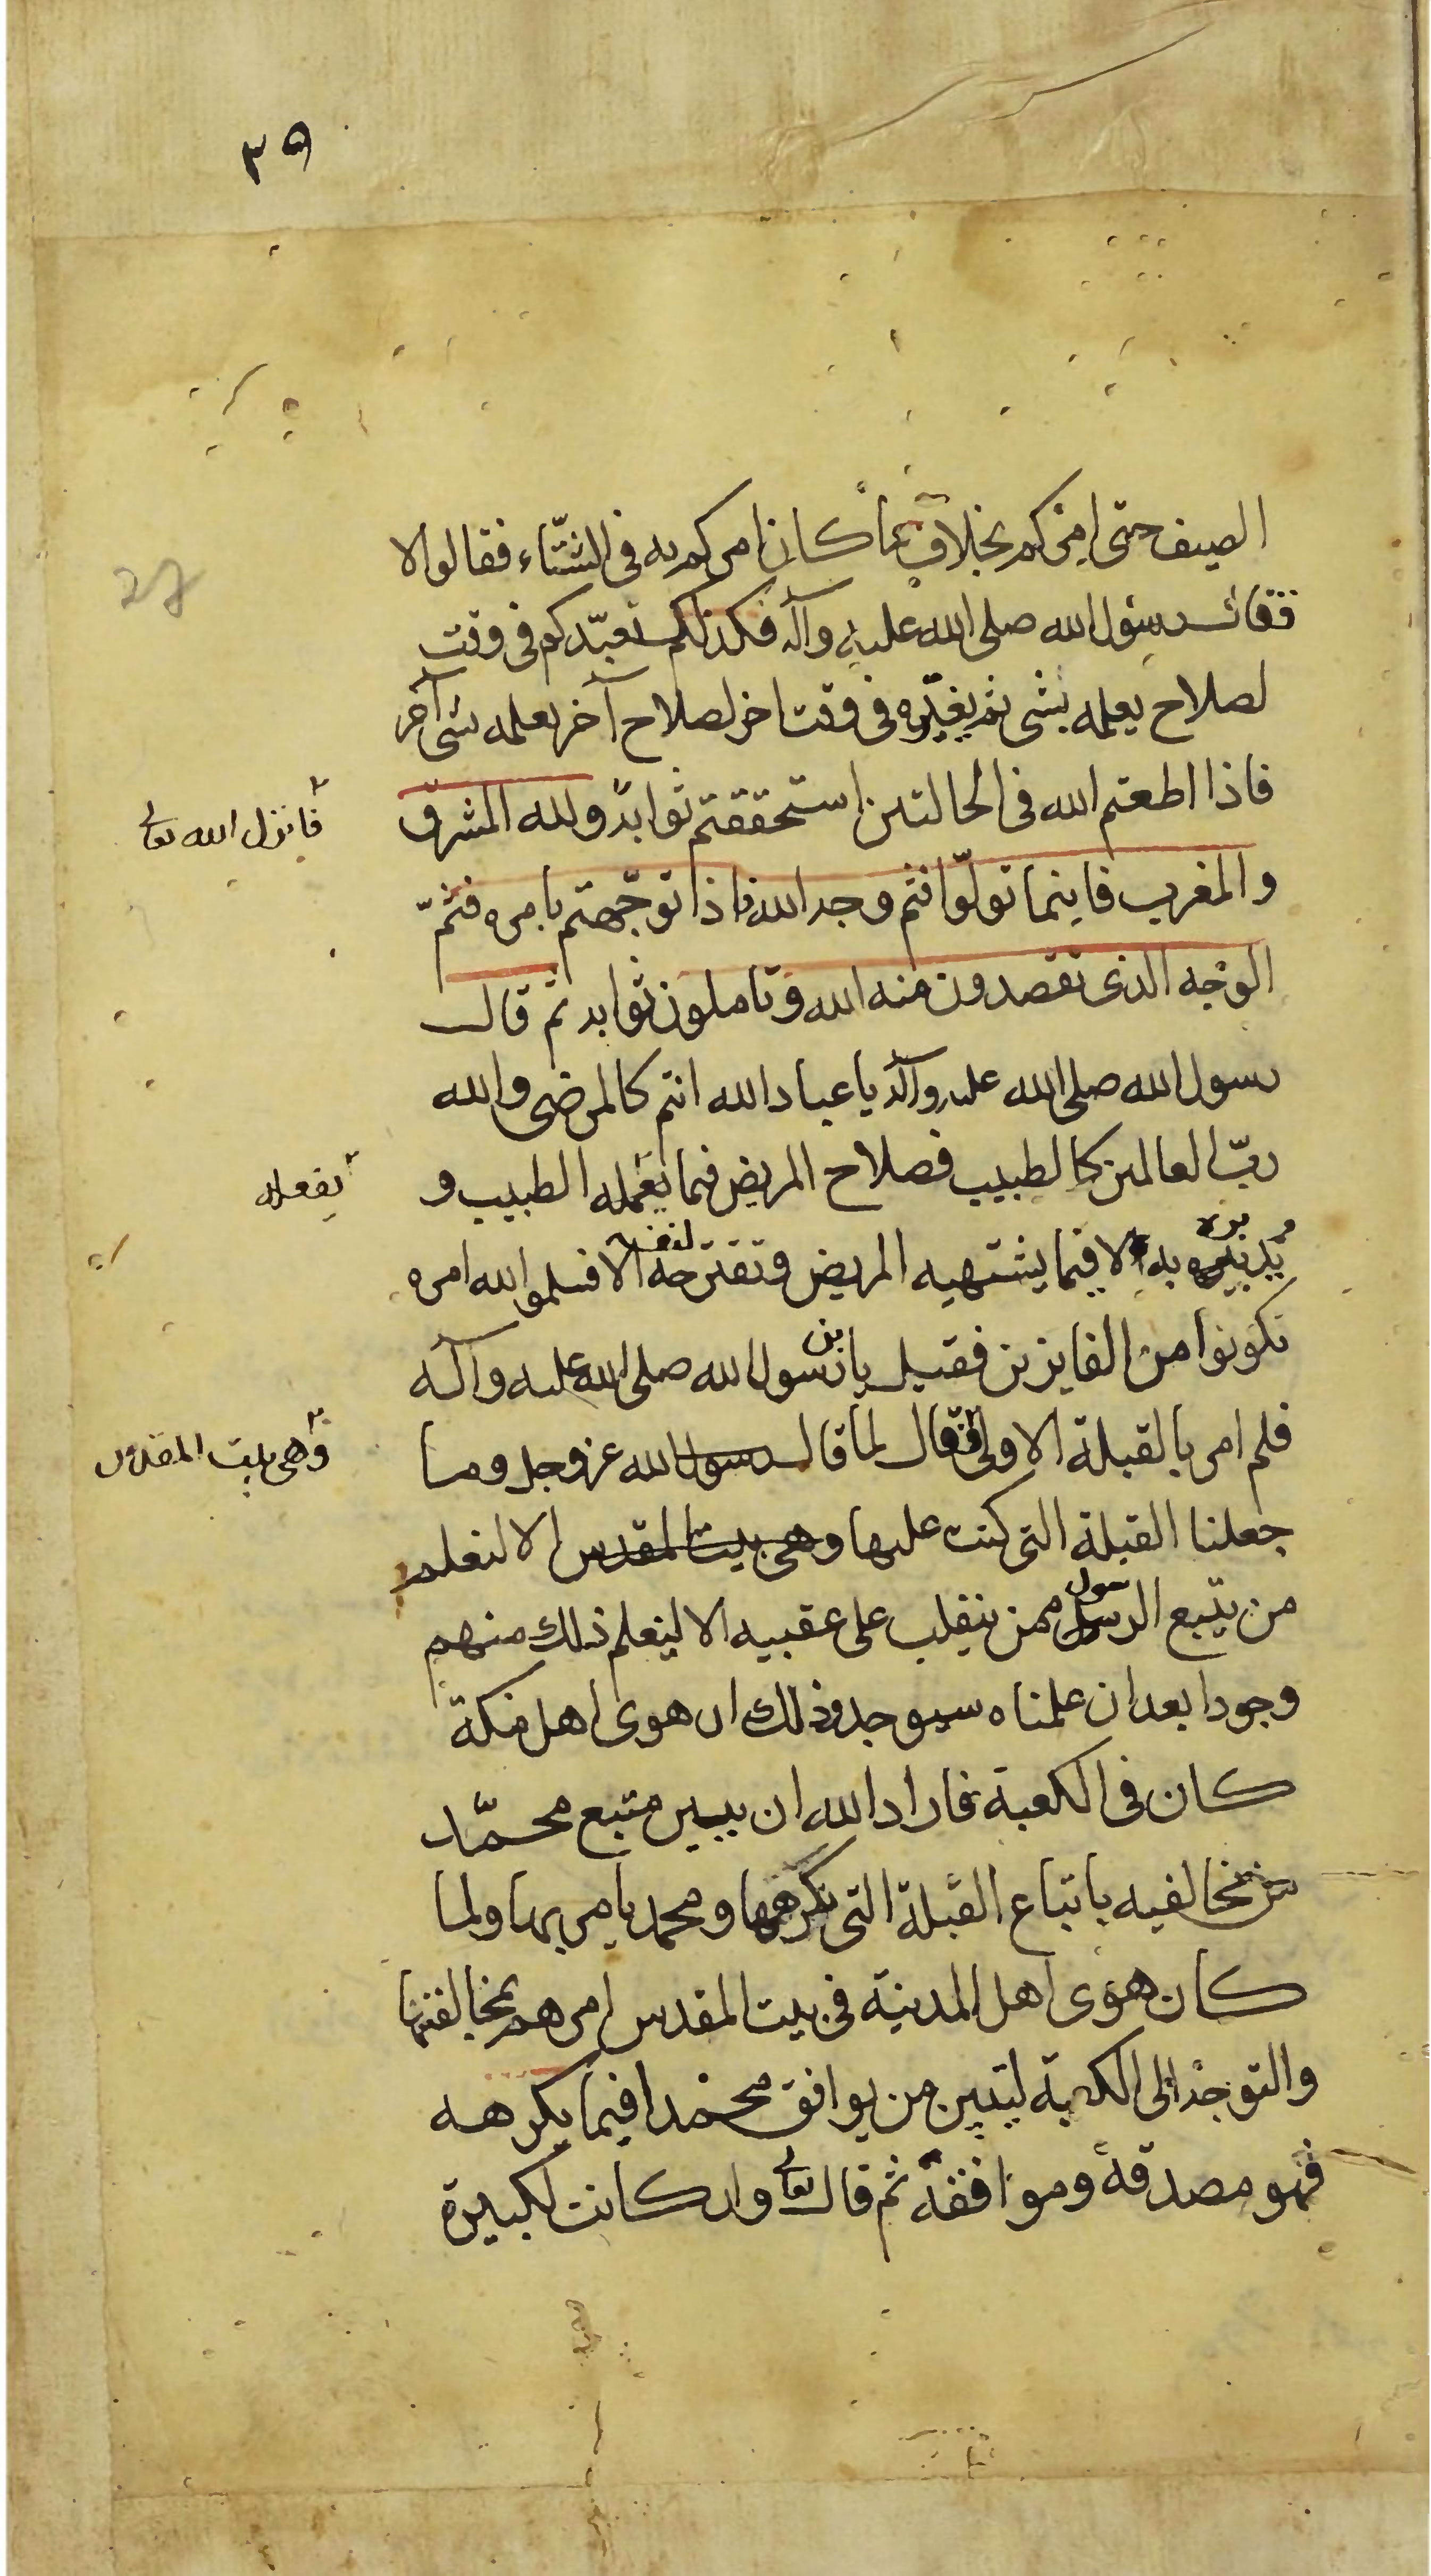 ٣٩
الصيف حتى امركم بخلاف ما كان امركم به فى الشتاء فقالوا لا
فقال رسول الله صلى الله عليه وآله فكذلكم تعبّدكم فى وقت
لصلاح يعلمه بشى ثم يغيّره فى وقت اخر لصلاح آخر يعلمه بشى آخر
فاذا اطعتم الله فى الحالتين استحققتم ثوابه ولله المشرق
فانزل الله تعالى
والمغرب فاينما تولّوا فثم وجه الله فاذا توجّهتم بامره فثمّ
الوجه الذى تقصدون منه الله وتاملون ثوابه ثم قال
رسول الله صلى الله عليه وآله يا عباد الله انتم كالمرضى والله
ربّ العالمين كالطبيب فصلاح المريض فيما يعمله الطبيب و
يفعله
يدبره به لا فيما يشتهيه المريض وتقترحه الا فسلموا لله امره
تكونوا من الفايزين فقيل يابن رسول الله صلى الله عليه وآله
فلم امر بالقبلة الاولى فقال لما قال رسول الله عز وجل وما
وهى بيت المقدس
جعلنا القبلة التى كنت عليها وهى بيت المقدس الا لنعلم
من يتبع الرسول ممن ينقلب على عقبيه الا لنعلم ذلك منهم
وجودا بعد ان علمناه سيوجد وذلك ان هوى اهل مكة
كان فى الكعبة فاراد الله ان يبين متبع محمّد
من مخالفيه باتباع القبلة التى كرهها ومحمد يامر بها ولما
كان هوى اهل المدينة فى بيت المقدس امرهم بمخالفتها
والتوجه الى الكعبة ليتبين من يوافق محمدا فيما يكرهه
فهو مصدقه وموافقه ثم قال تعالى وان كانت لكبيرة